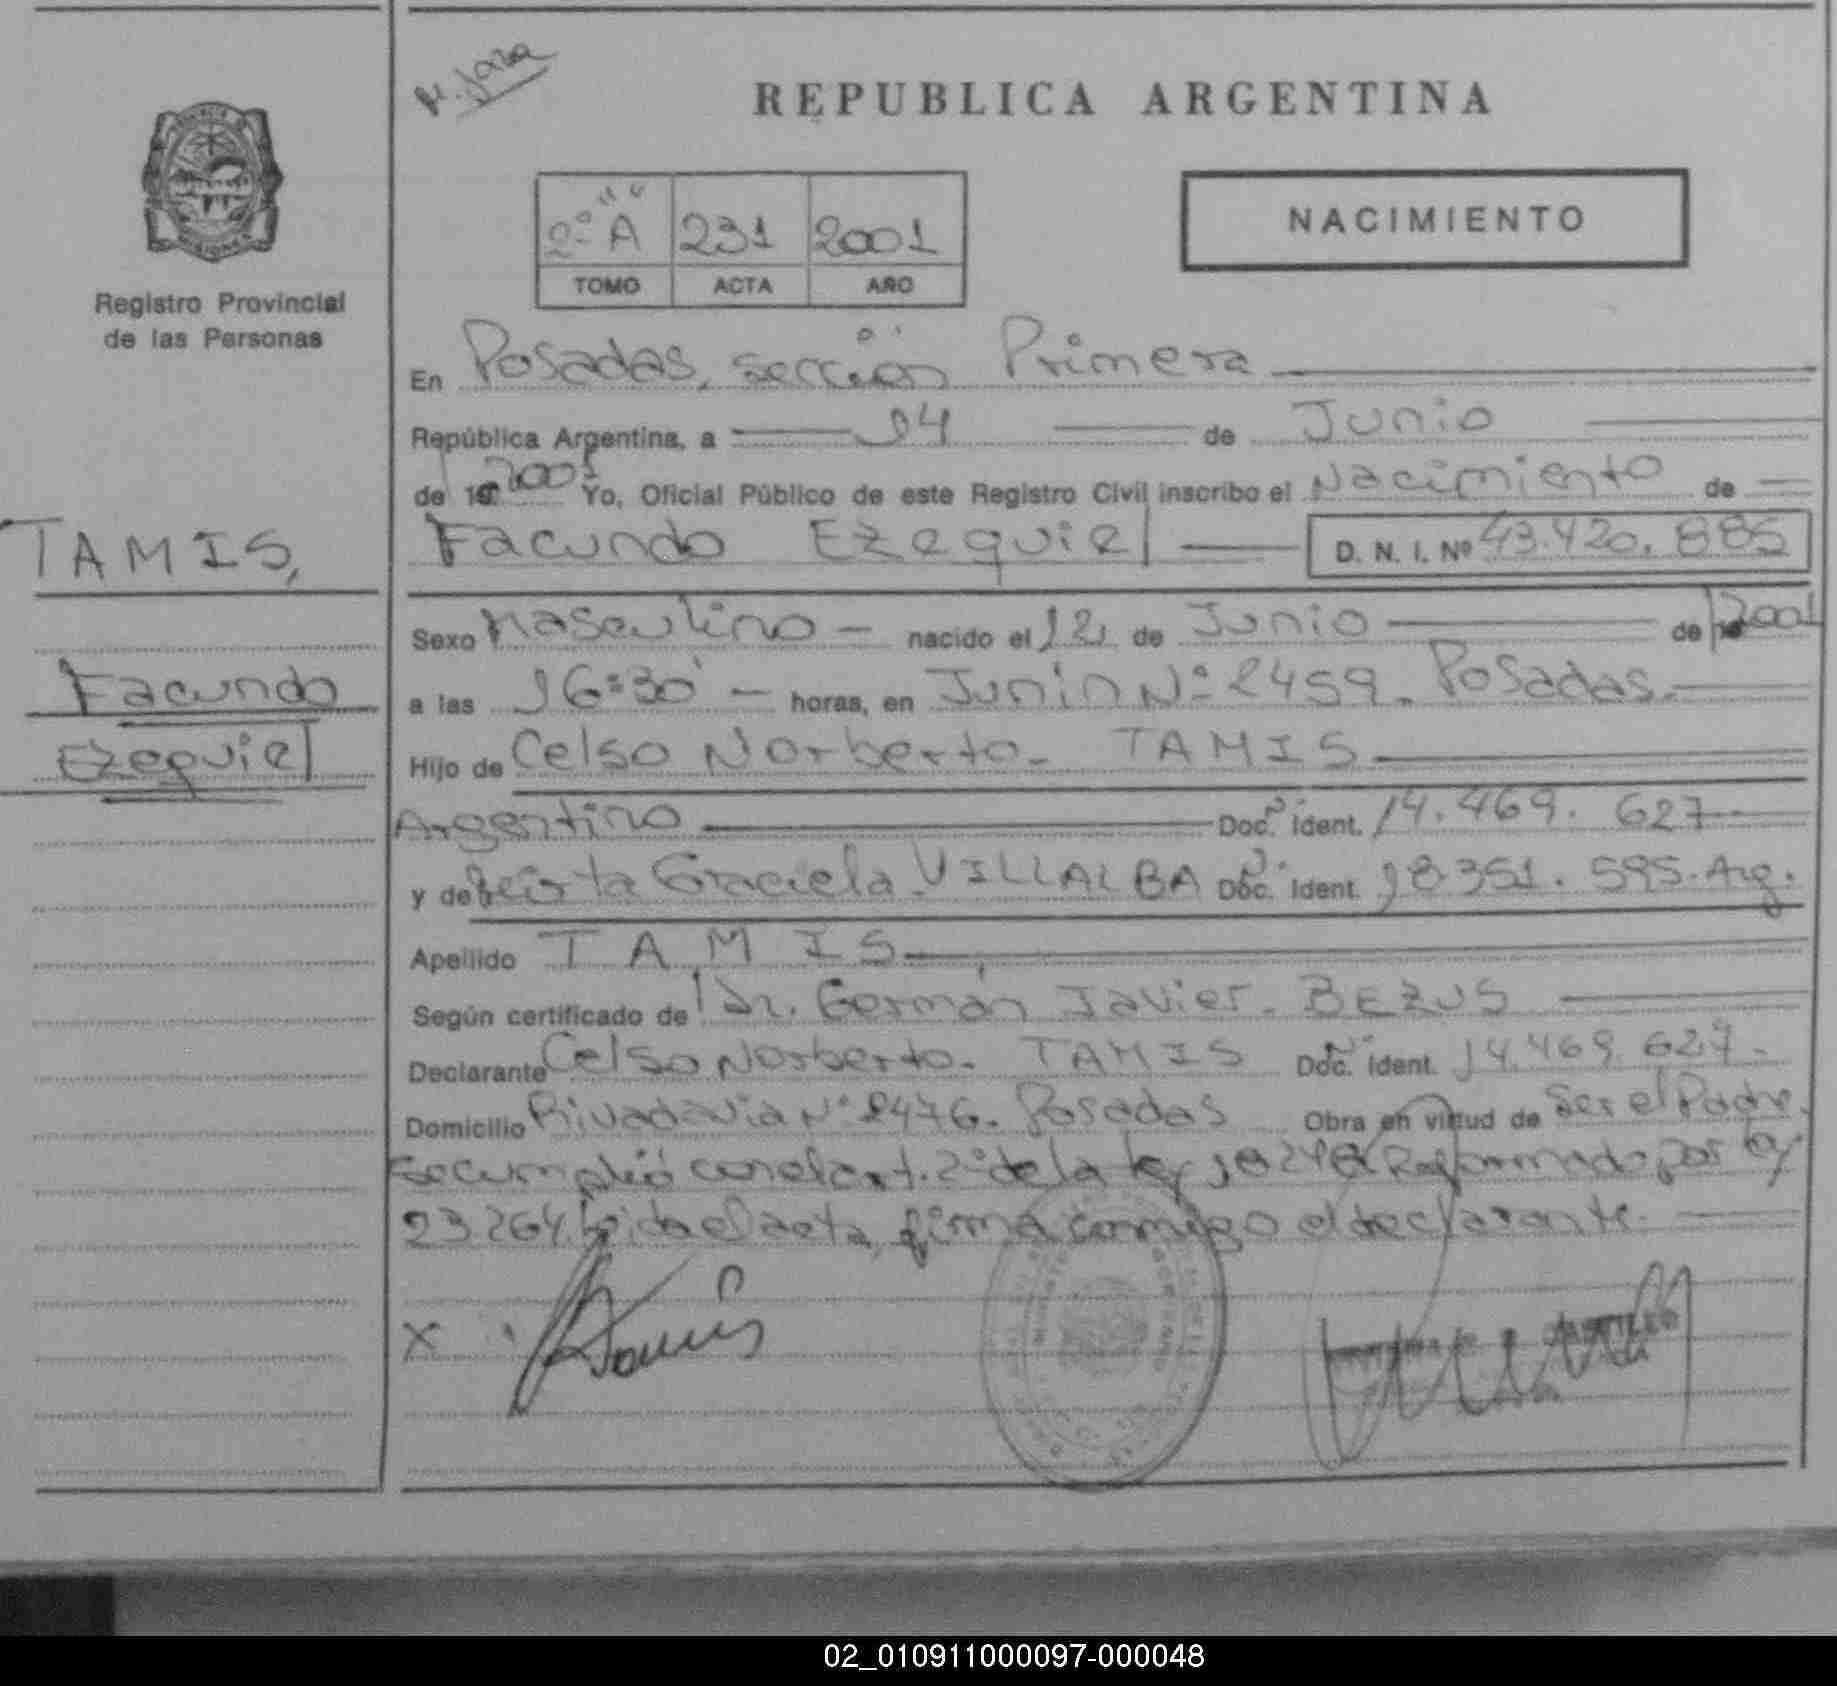 N. Jara
REPUBLICA ARGENTINA
NACIMIENTO
2º "A" 231 2001
TOMO ACTA AÑO
MISIONES
Registro Provincial
de las Personas
En Posadas, sección Primera
República Argentina, a 14 de Junio
de 19 2001 Yo, Oficial Público de este Registro Civil inscribo el Nacimiento de
TAMIS,
Facundo Ezequiel D. N. I. Nº 43.420.885
Sexo Masculino - nacido el 12 de Junio de 2001
Facundo
a las 16:30 - horas, en Junin Nº 2459. Posadas.
Ezequiel
Hijo de Celso Norberto. TAMIS
Argentino Doc. Ident. 14.469.627
y de Mirta Graciela VILLALBA Doc. Ident. 18.351.595. Arg.
Apellido TAMIS
Según certificado de Dr. Germán Javier. BEZUS
Declarante Celso Norberto. TAMIS Doc. Ident. 14.469.627-
Domicilio Rivadavia Nº 2476. Posadas Obra en virtud de Ser el Padre.
se cumplió con el art. 2º de la ley 18248 Reformado por ley
23.264. Leida el acta, firma conmigo el declarante.
X Tamis
02_010911000097-000048